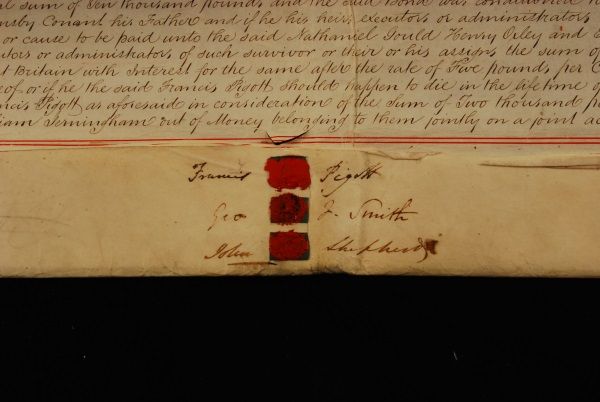 sum of Ten thousand pounds, and the said Bond was
Conant his Father and if he his heirs executors or administrators
or cause to be paid unto the said Nathaniel Gould Henry Oxley and
or administrators of such survivor or their or his assigns the sum of
Britain with Interest for the same after the rate of Five pounds per
of or if he the said Francis Pigott should happen to die in the lifetime of
Pigott as aforesaid in consideration of the Sum of Two thousand
Jerningham out of Money belonging to them jointly on a joint
Francis Pigott
Geo J. Smith
John Shepherd